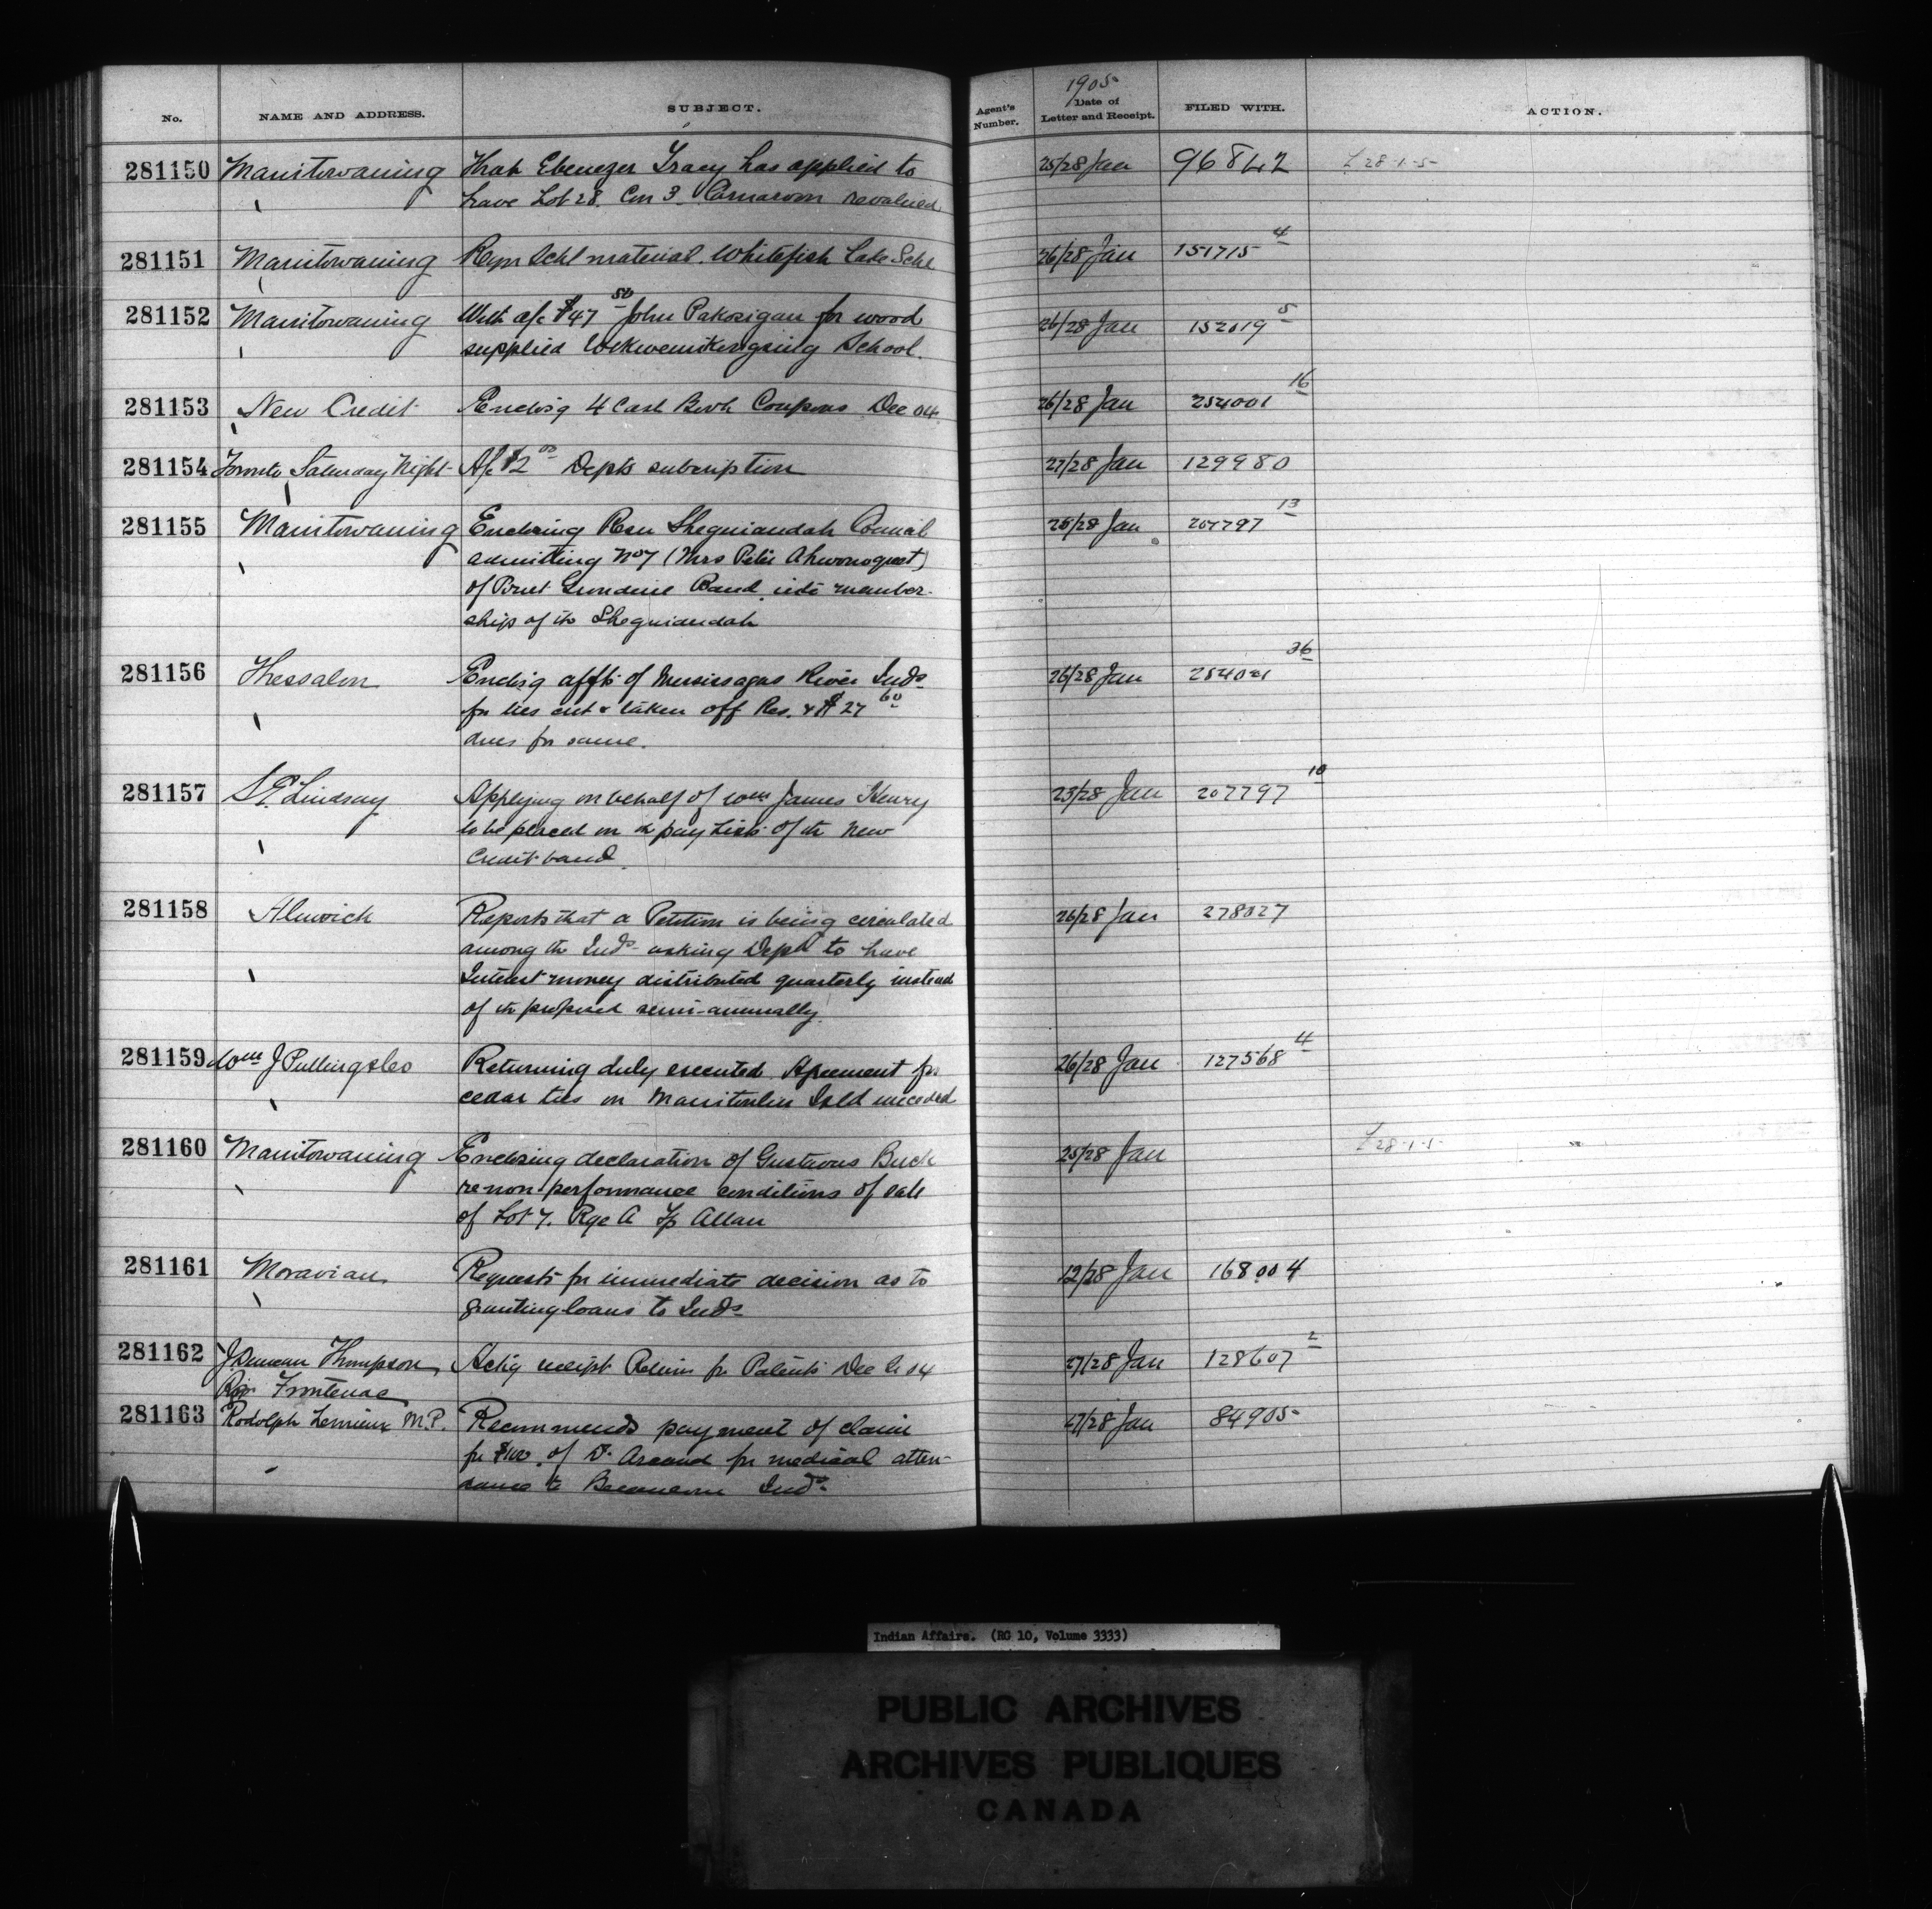 No. NAME AND ADDRESS. SUBJECT. Agent's Number. 1905 Date of Letter and Receipt. FILED WITH. ACTION.
281150 Manitowaning That Ebenezer Tracy has applied to 25/28 Jan 96842 L 28-1-5
have Lot 28. Con 3. Carnarvon revalued
281151 Manitowaning Reqn Schl material. Whitefish Lake Schl 26/28 Jan 151715 4
281152 Manitowaning With a/c $47 50 John Pakosigan for wood 26/28 Jan 152019 5
supplied Wikwemikongsing School.
281153 New Credit Enclosg 4 Cash Book Coupons Dec 04 26/28 Jan 254001 16
281154 Toronto Saturday Night A/c $2 00 Depts subcription 27/28 Jan 129980
281155 Manitowaning Enclosing Resn Sheguiandah Council 25/28 Jan 207797 13
admitting No 7 (Mrs Peter
of Point Grondine Band into member-
ship of the Sheguiandah
281156 Thessalon Enclosg affts of Mississagua River Inds 26/28 Jan 254001 36
for ties cut & taken off Res. & $27 60
dues for same.
281157 S.E. Lindsay Applying on behalf of Wm James Henry 23/28 Jan 207797 10
to be placed on the pay list of the New
Credit band.
281158 Alnwick Reports that a Petition is being circulated 26/28 Jan 278027
among the Inds asking Dept to have
Interest money distributed quarterly instead
of the proposed semi-annually.
281159 Wm J Pulling & Co Returning duly executed Agreement for 26/28 Jan 127568 4
cedar ties on Manitoulin Isld unceded
281160 Manitowaning Enclosing declaration of Gustavus Buck 25/28 Jan L 28-1-5
re non performance conditions of sale
of Lot 7. Rge A Tp Allan
281161 Moravian Requests for immediate decision as to 12/28 Jan 168004
granting loans to Inds
281162 J. Duncan Thompson, Ackg receipt Return for Patents Dec Qr 04 27/28 Jan 128607 2
Frontenac
281163 Rodolph Lemieux M.P. Recommends payment of claim 27/28 Jan 84905
for $100. of Dr Arcand for medical atten-
dance to Becancour Inds
Indian Affairs. (RG 10, Volume 3333)
PUBLIC ARCHIVES
ARCHIVES PUBLIQUES
CANADA